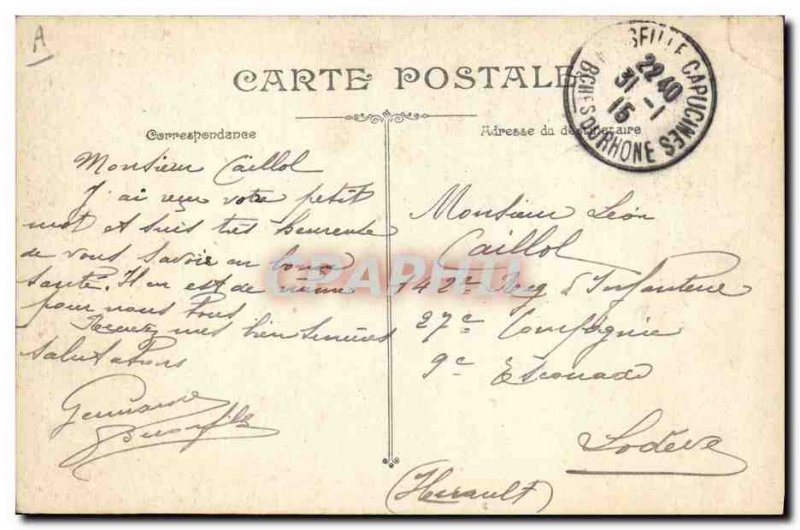 A
CARTE POSTALE
MARSEILLE CAPUCINES
2240
31 - 1
15
BCHES DU RHONE
Correspondance
Adresse du destinataire
Monsieur Caillol
J'ai reçu votre petit
mot et suis très heureuse
de vous savoir en bonne
santé. Il en est de même
pour nous tous
Recevez mes bien sincères
salutations
Germaine
Monsieur Léon
Caillol
142e Reg d'Infanterie
27e Compagnie
9e Escouade
Lodève
(Hérault)
CPARAMA